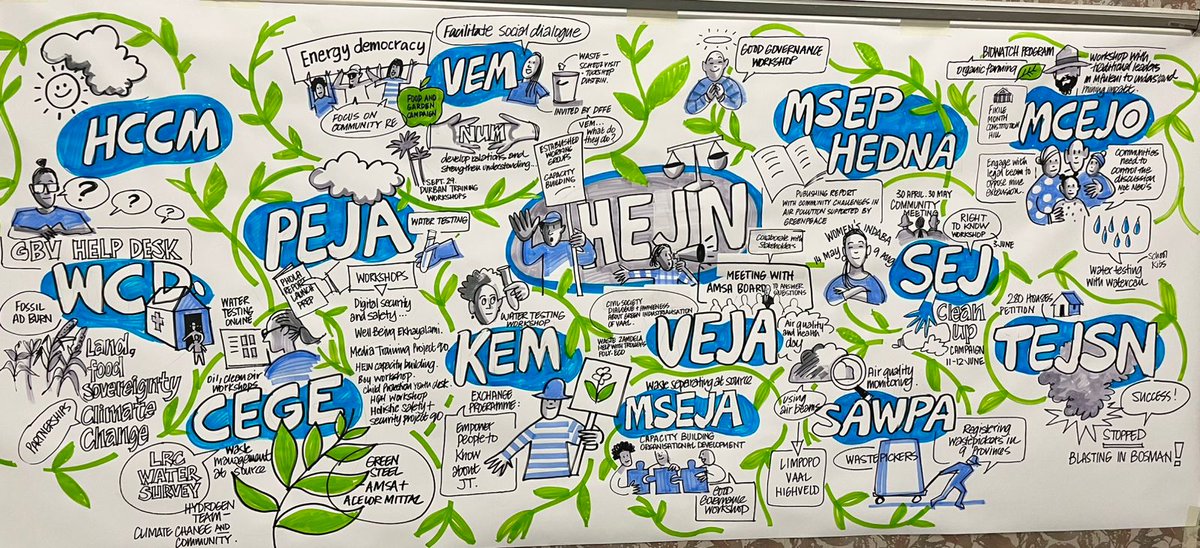 HCCM
?
?
?
GBV HELP DESK
WCD.
FOSSIL
AD BURN
Land,
food
sovereignty
climate
change
PARTNERSHIPS
WATER
TESTING
ONLINE
Energy democracy
FOCUS ON
COMMUNITY RE
FOOD AND
GARDEN
CAMPAIGN
Facilitate social dialogue
VEM
WASTE -
INVITED BY DFFE
VEM...
what do
they do?
NUM
develop relations and
strengthen understanding
SEPT. 29.
DURBAN TRAINING
WORKSHOPS
ESTABLISHED
WORKING
GROUPS
CAPACITY
BUILDING
PEJA
WATER TESTING
PHOLA
REPORT
LAUNCH
PREP
WORKSHOPS
Digital security
and safety...
Well Being Ekhayalami.
Media Training Project 90
HEJN capacity building.
Buy workshop
HGM workshop
Holistic safety +
security project 90
Oil, clean air
workshops
CEGE
Waste
management
at source
LRC
WATER
SURVEY
HYDROGEN
TEAM -
CLIMATE CHANGE AND
COMMUNITY.
GREEN
STEEL
AMSA +
ACELOR MITTAL
HEJN
GOOD GOVERNANCE
WORKSHOP
MSEP
HEDNA
PUBLISHING REPORT
WITH COMMUNITY CHALLENGES IN
AIR POLLUTION SUPPORTED BY
GREENPEACE
Collaborate with
stakeholders
MEETING WITH
AMSA BOARD
TO ANSWER
QUESTIONS
WATER TESTING
WORKSHOP
KEM
EXCHANGE
PROGRAMME:
Empower
people to
know
about
JT.
CIVIL SOCIETY
DIALOGUE + AWARENESS
ABOUT GREEN INDUSTRIALISATION
OF VAAL..
WASTE ZAMDELA
HELP WITH TRAINING
VEJA
Air quality
and health
day
Waste separating at source
MSEJA
CAPACITY BUILDING
ORGANISATIONAL DEVELOPMENT
Good
Governance
workshop
using
air beams
LIMPOPO
VAAL
HIGHVELD
Air quality
monitoring.
SAWPA
WASTEPICKERS
Registering
wastepickers in
9 Provinces
WOMEN'S INDABA
14 May
9 Aug
30 APRIL. 30 MAY
COMMUNITY
MEETING
RIGHT
TO KNOW
WORKSHOP
JUNE
SEJ
Clean
up
CAMPAIGN
11-12 JUNE
BIOWATCH PROGRAM
organic farming
Workshop with
traditional leaders
in Mfuleni to understand
mining impact.
MCEJO
FIKILE
MONTH
CONSTITUTION
HILL
Engage with
legal team to
oppose mine
expansion.
Communities
need to
control the
discussion
not NGO's
Water testing
with watercan
- School
Kids
280 HOUSES
PETITION
TEJSN
SUCCESS!
STOPPED
BLASTING IN BOSMAN!